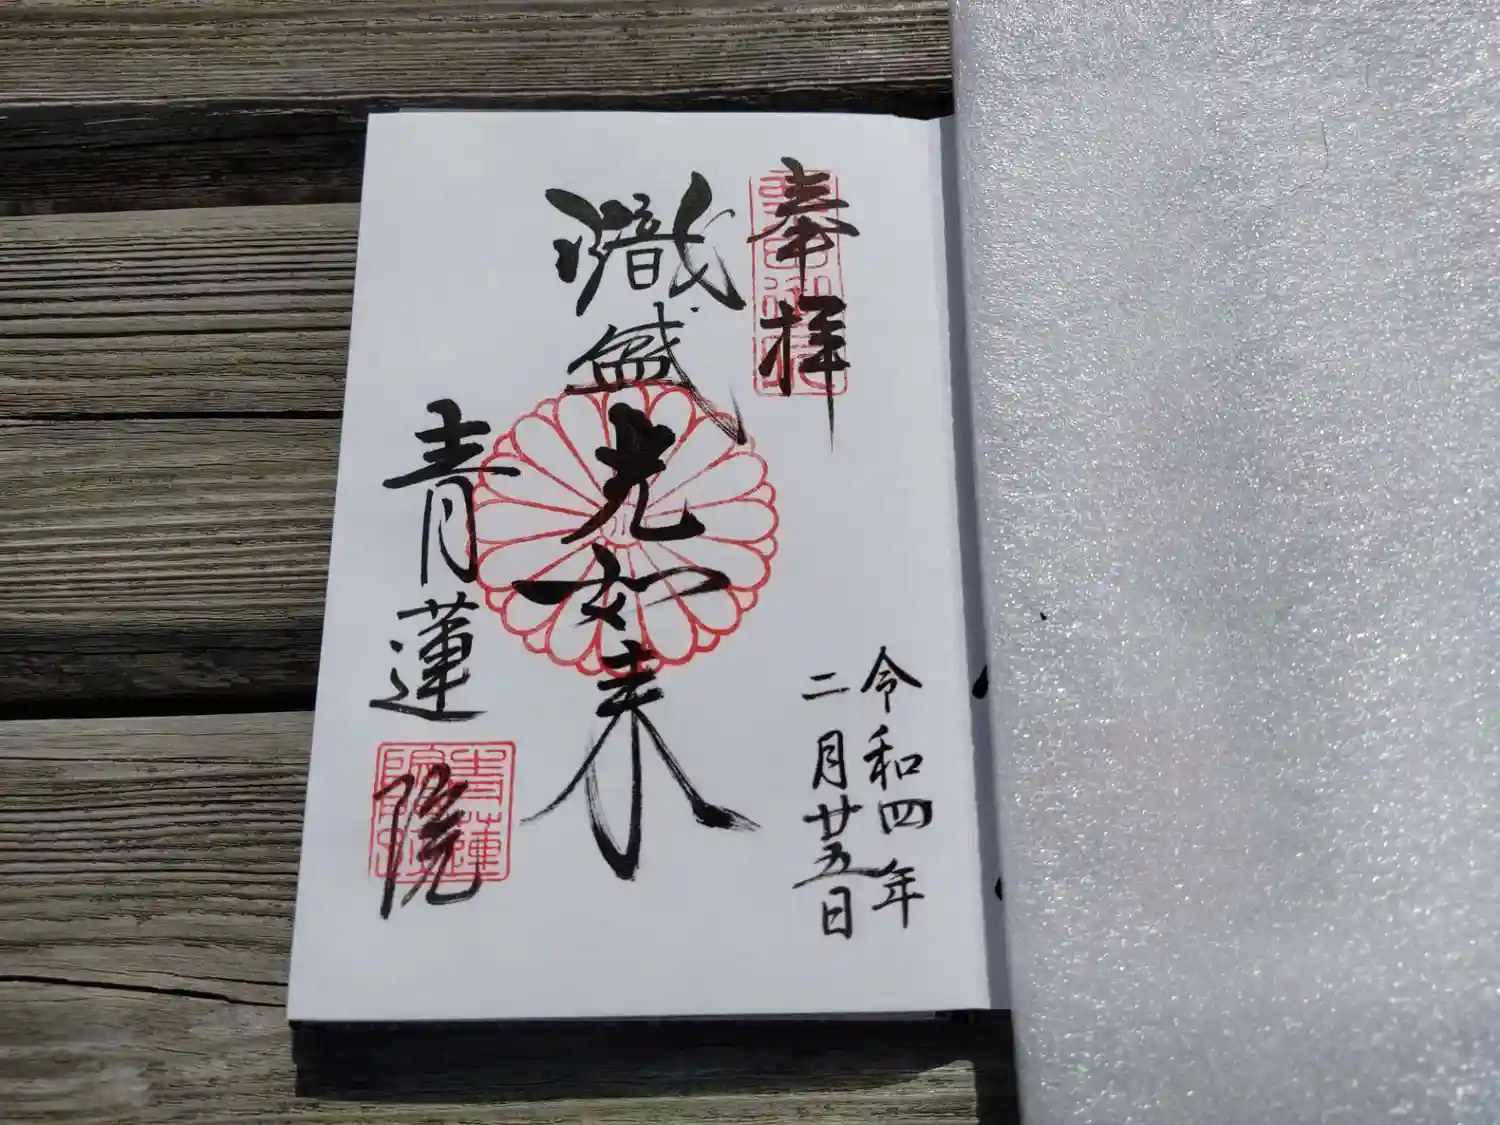 奉拝
令和四年
二月廿五日
熾盛光如来
青蓮院